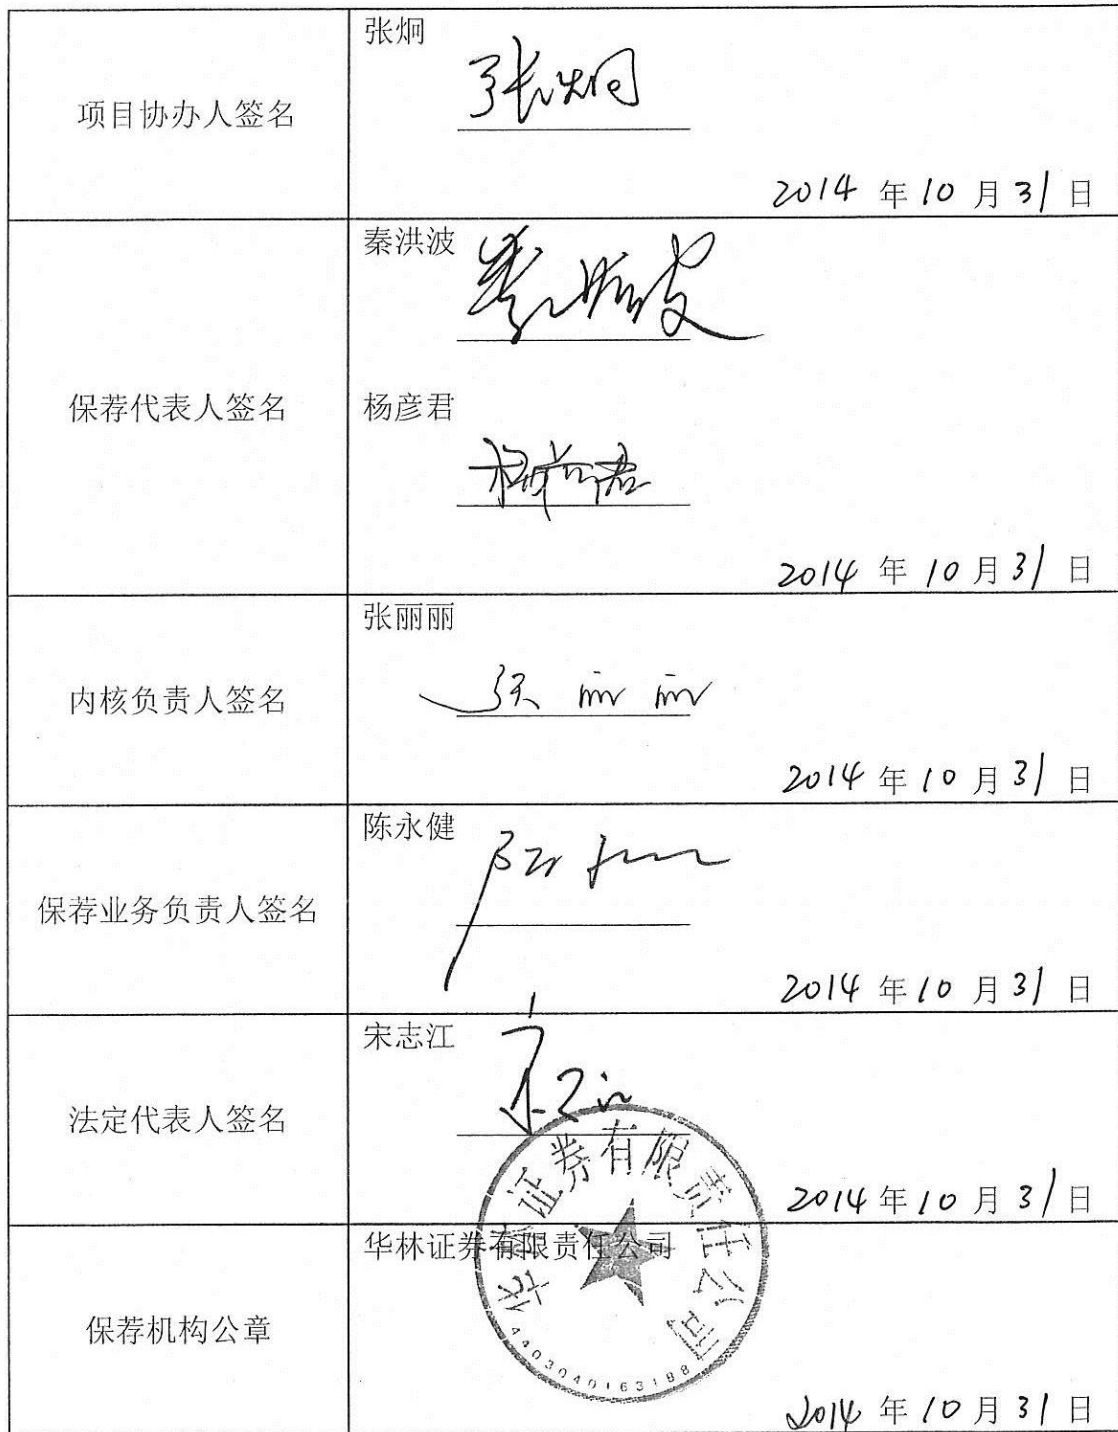 项目协办人签名
张炯
张炯
2014 年 10 月 31 日
保荐代表人签名
秦洪波
秦洪波
杨彦君
杨彦君
2014 年 10 月 31 日
内核负责人签名
张丽丽
张丽丽
2014 年 10 月 31 日
保荐业务负责人签名
陈永健
2014 年 10 月 31 日
法定代表人签名
宋志江
2014 年 10 月 31 日
保荐机构公章
华林证券有限责任公司
华林证券有限责任公司
4403040163188
2014 年 10 月 31 日